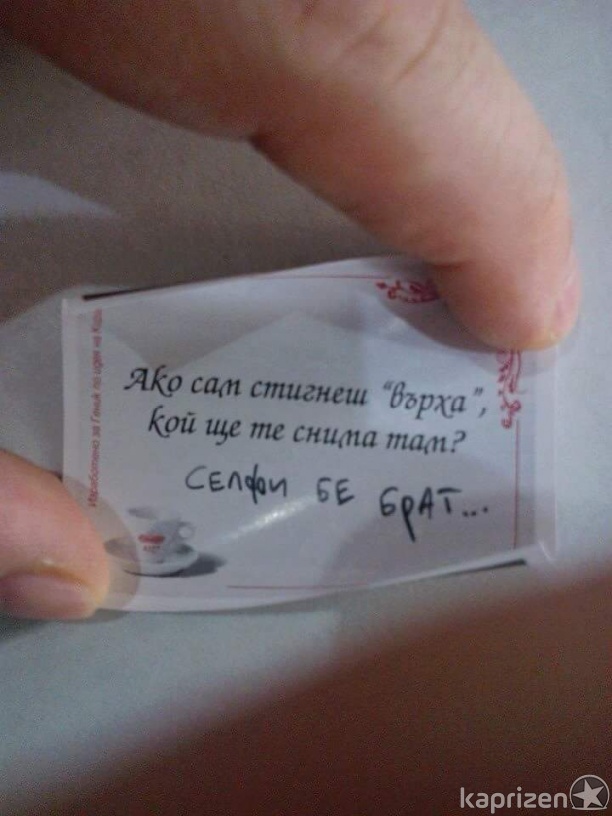 Ако сам стигнеш "върха",
кой ще те снима там?
СЕЛФИ БЕ БРАТ...
Изработено за Геник по идея на
kaprizen